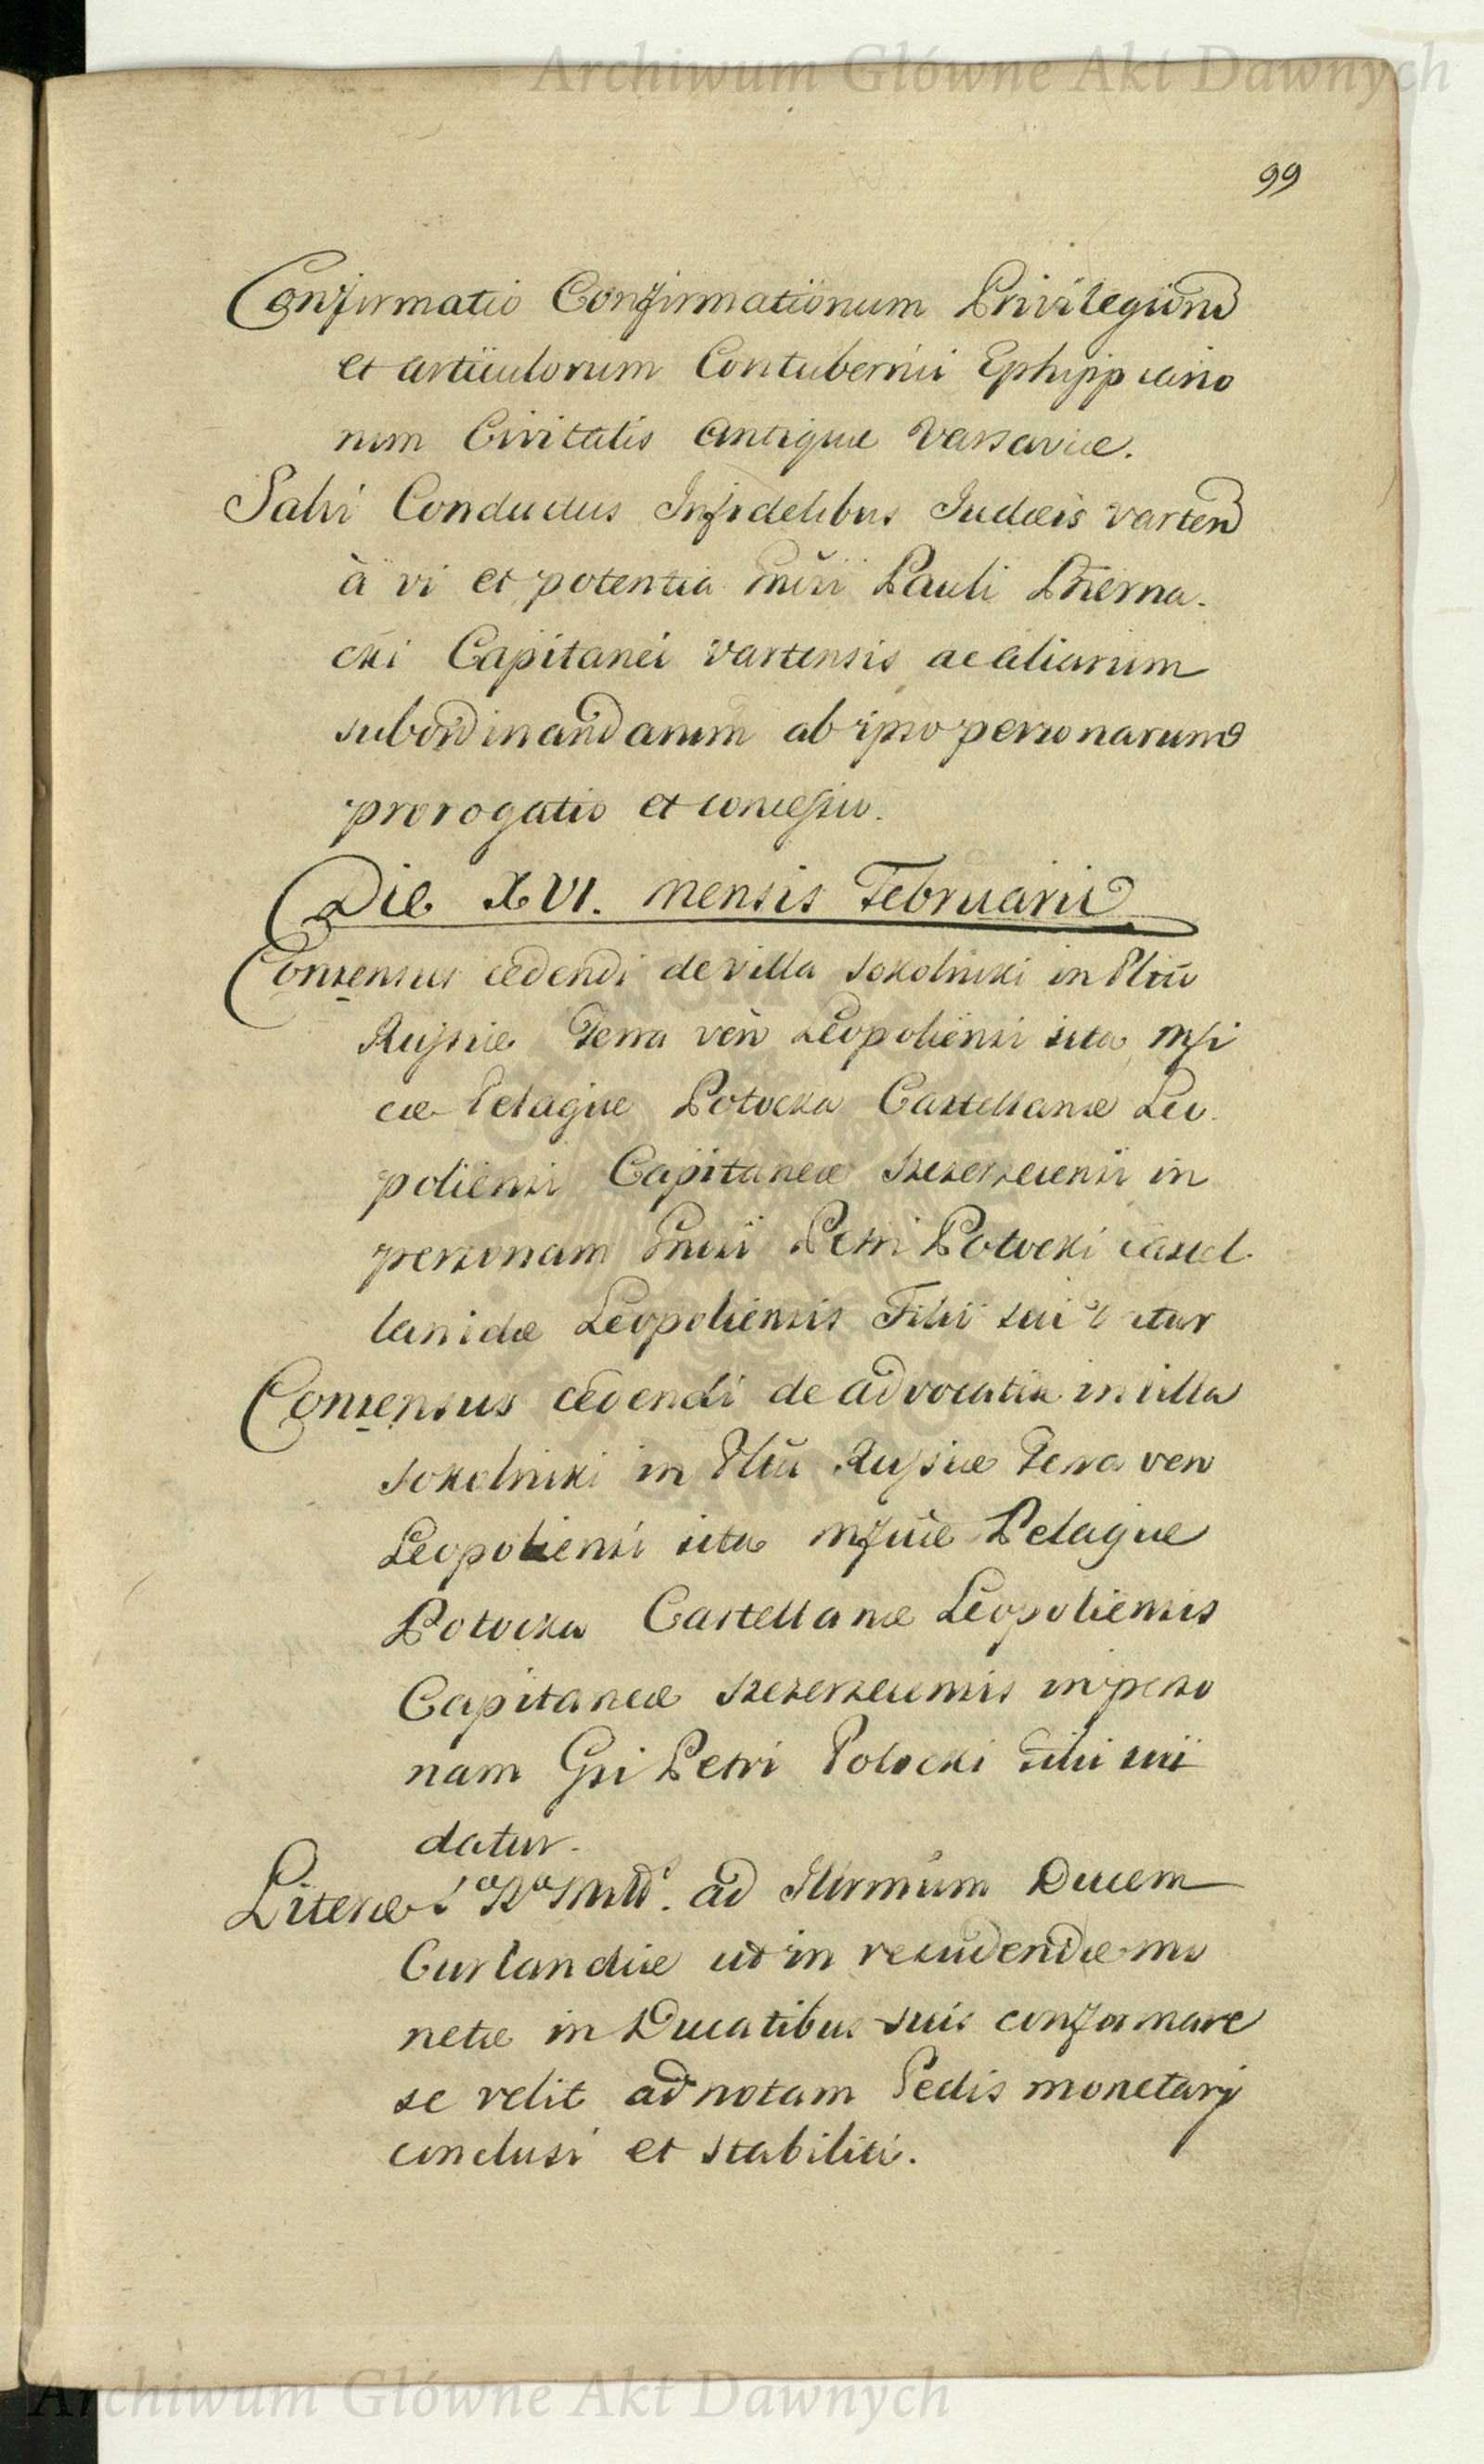 Archiwum Główne Akt Dawnych
99
Confirmatio Confirmationum Privilegiorum
et articulorum Contubernii Ephippiario
rum Civitatis Antiquæ Varsaviæ.
Salvi Conductus Infidelibus Judæis Varten
à vi et potentia Pauli Bierna.
cki Capitanei Vartensis ac aliarum
subordinandarum ab ipso personarum
prorogatio et concessio.
Die XVI. mensis Februarii
Consensus cedendi de villa Sokolniki in Pltũ
Russiæ Terra verò Leopoliensi sita Mfi
cæ Pelagiæ Potocka Castellanæ Leo.
poliensi Capitaneæ Szczerzecensi in
personam Petri Potocki Castel
lanidæ Leopoliensis Filii sui datur
Consensus cedendi de advocatia in villa
Sokolniki in Pltũ Russiæ Terra vero
Leopoliensi sita Mficæ Pelagiæ
Potocka Castellanæ Leopoliensis
Capitaneæ Szczerzecensis in perso
nam Gsi Petri Potocki Filii sui
datur.
Literæ S R Mttis. ad Illrmum Ducem
Curlandiæ ut in recudendæ mo
netæ in Ducatibus suis conformare
se velit ad notam Pedis monetarij
conclusi et stabiliti.
Archiwum Główne Akt Dawnych